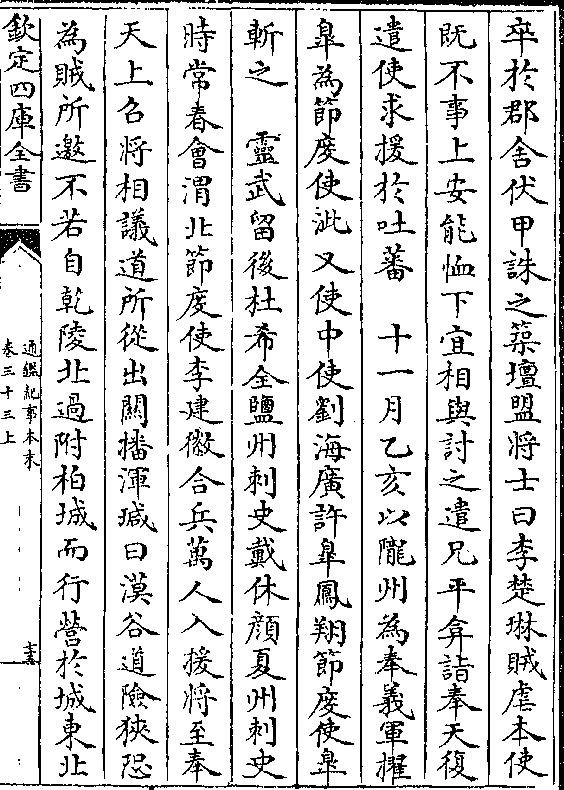 卒於郡舍伏甲誅之築壇盟將士曰李楚琳賊虐本使
既不事上安能恤下宜相與討之遣兄平弇詣奉天復
遣使求援於吐蕃　十一月乙亥以隴州為奉義軍擢
臯為節度使泚又使中使劉海廣許臯鳳翔節度使臯
斬之　靈武留後杜希全鹽州刺史戴休顔夏州刺史
時常春會渭北節度使李建徽合兵萬人入援將至奉
天上召將相議道所從出關播渾瑊曰漠谷道險狹恐
為賊所邀不若自乾陵北過附柏城而行營於城東北
欽定四庫全書
通鑑紀事本末
卷三十三上